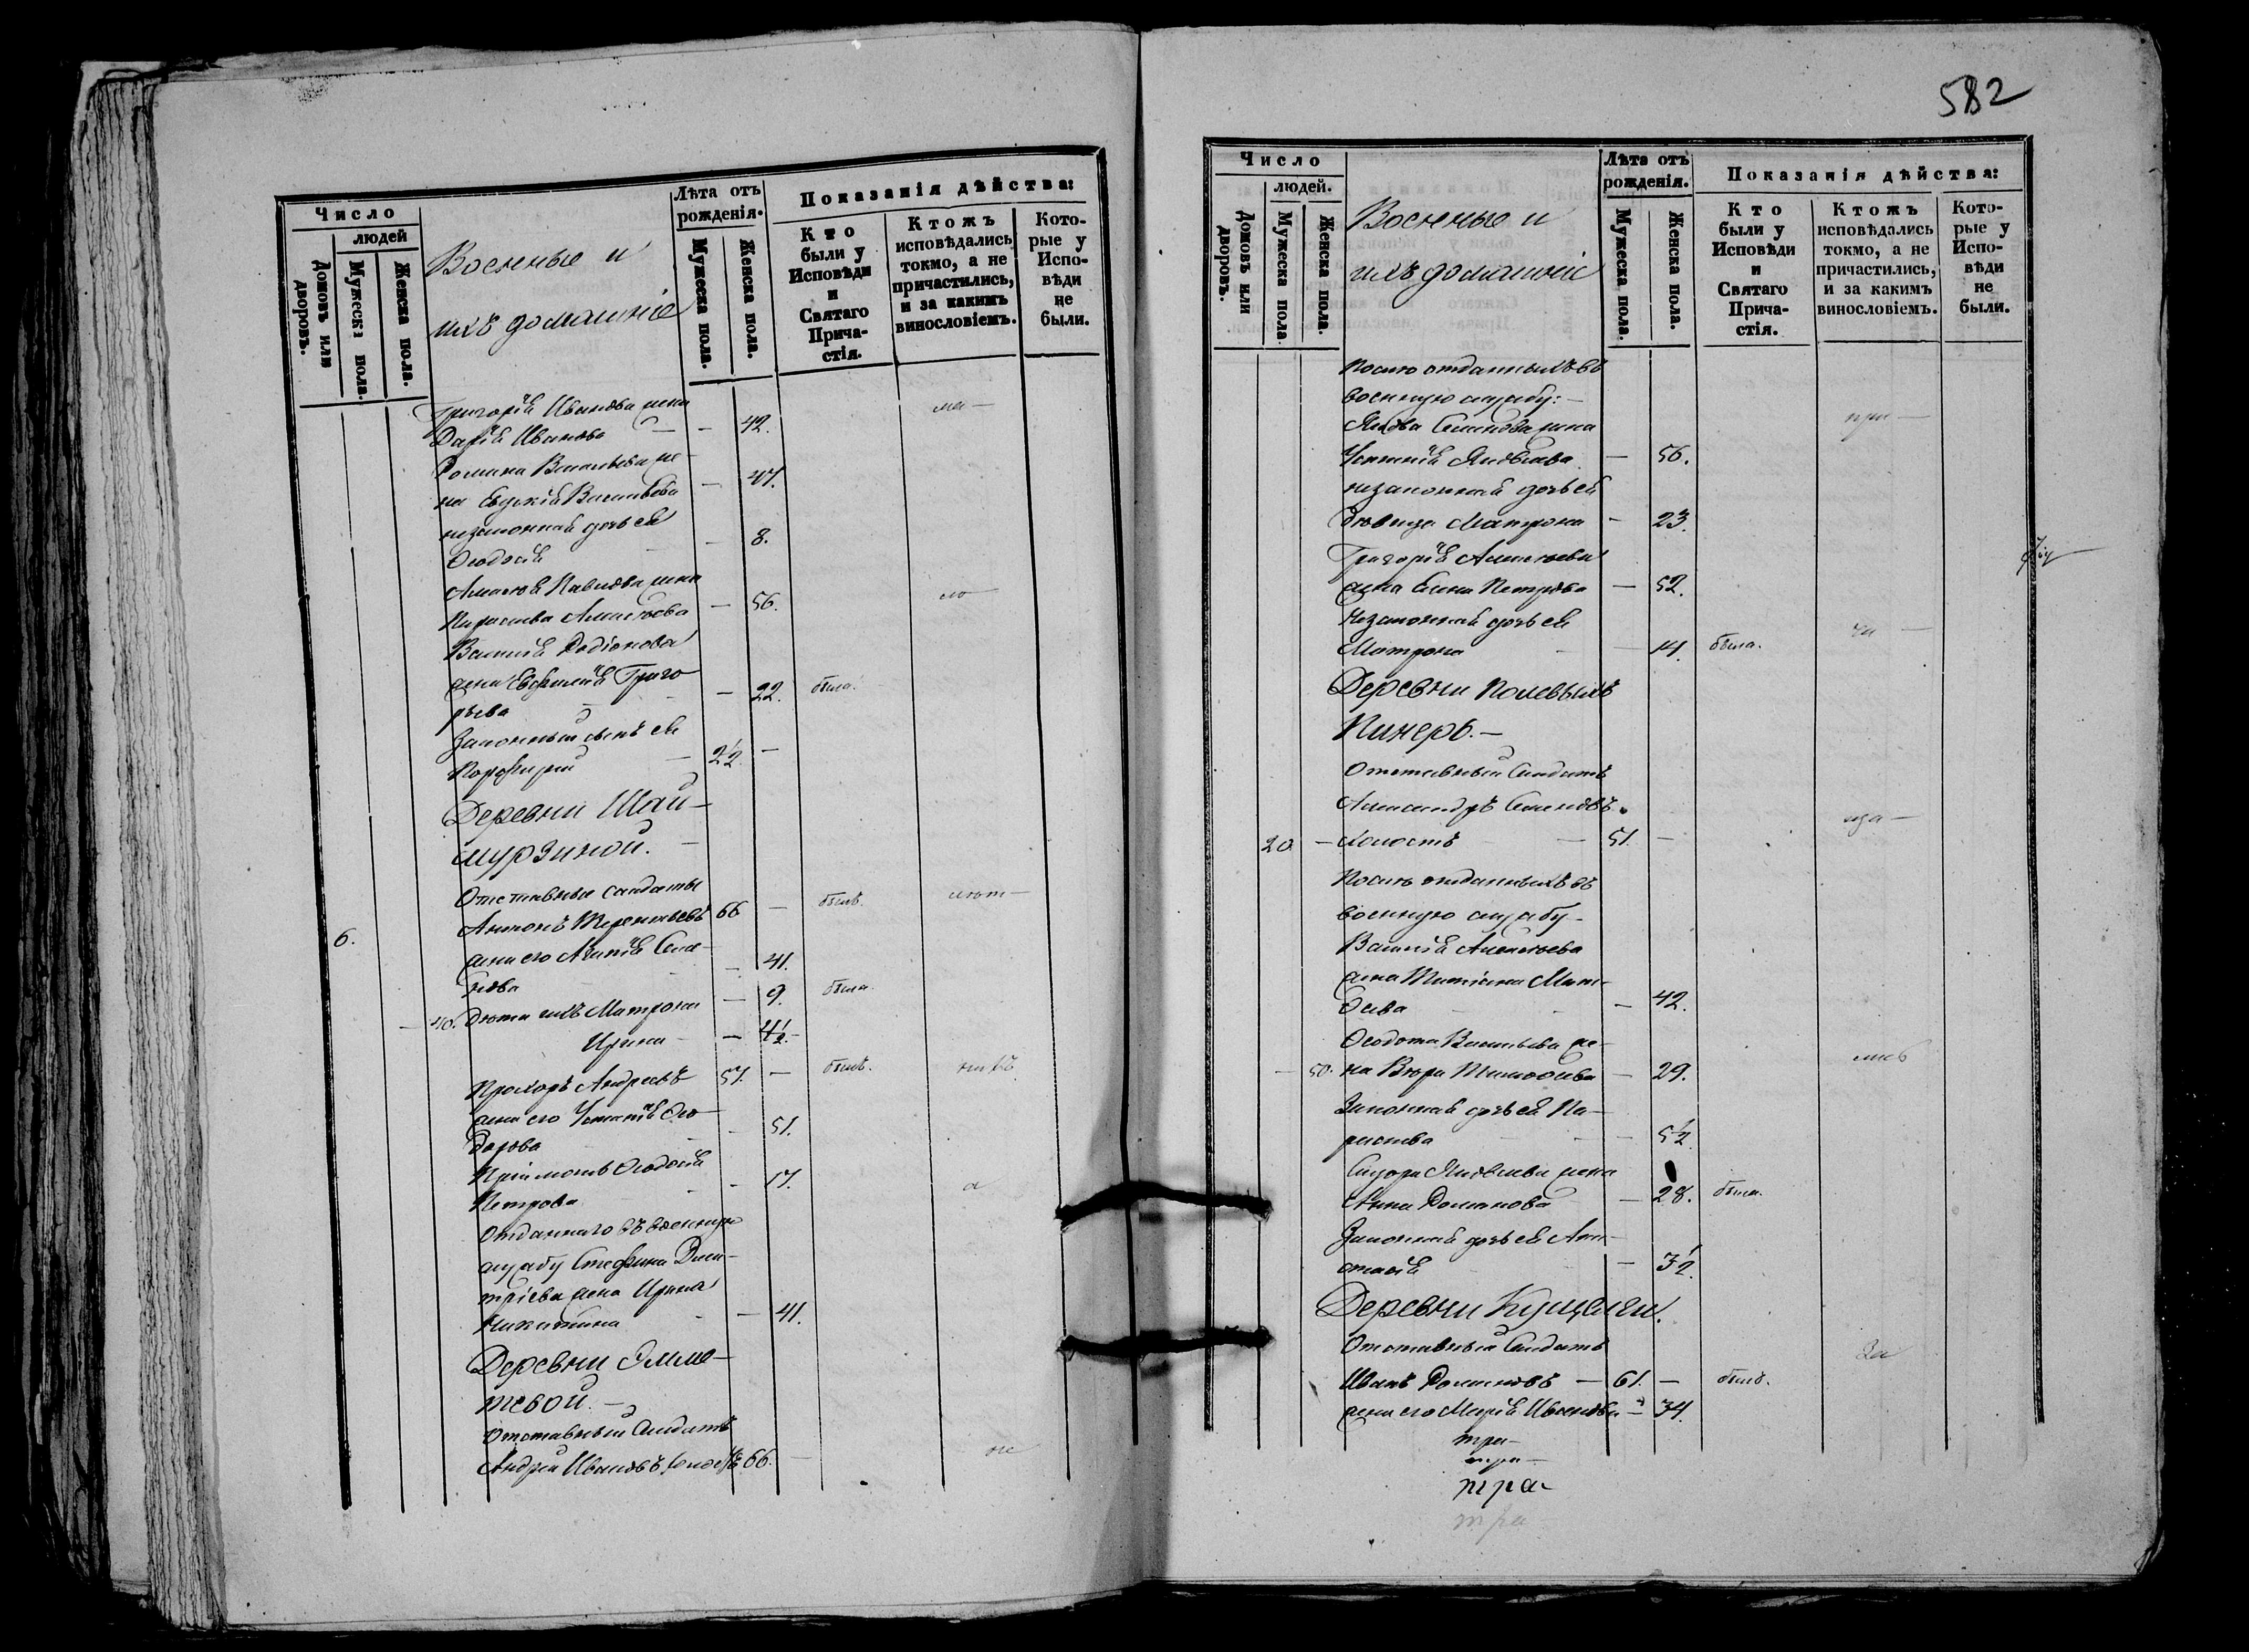 Число
людей
Домовъ или дворовъ.
Мужеска пола.
Женска пола.
Военные и
ихъ домашніе
Лѣта отъ
рожденія.
Мужеска пола.
Женска пола.
Показанія дѣйства:
Кто
были у
Исповѣди
и
Святаго
Прича-
стія.
Ктожъ
исповѣдались
токмо, а не
причастились,
и за какимъ
винословіемъ.
Кото-
рые у
Испо-
вѣди
не
были.
Григорія Иванова жена
Дарія Иванова — — 42.
Романа Васильева же-
на Евдокія Васильева — 47.
незаконная дочь ея
Ѳеодосія — 8.
Алексѣя Павлова жена
Параскева Алексѣева — 56.
Василія Родіонова
жена Евфимія Григо
рьева — 22. была.
Законный сынъ ея
Порфирій — 2½. —
Деревни Шай-
мурзиной. —
Отставные солдаты
6. Антонъ Терентьевъ 66 — былъ.
жена его Агапія Семе-
нова — 41.
— 40. Дѣти ихъ Матрона — 9. была.
Ирина — 4½.
Прохоръ Андреевъ 57. — былъ.
жена его Устинія Ѳео-
дорова — 51.
Пріемышъ Ѳеодосія
Петрова — 17.
Отданнаго въ военную
службу Стефана Дми-
тріева жена Ирина
Никитина — 41.
Деревни Элме-
тевой. —
Отставный Солдатъ
Андрей Ивановъ холостъ 66. —
582
Число
людей.
Домовъ или дворовъ.
Мужеска пола
Женска пола.
Военные и
ихъ домашніе
Лѣта отъ
рожденія.
Мужеска пола.
Женска пола.
Показанія дѣйства:
Кто
были у
Исповѣди
и
Святаго
Прича-
стія.
Ктожъ
исповѣдались
токмо, а не
причастились,
и за какимъ
винословіемъ.
Кото-
рые у
Испо-
вѣди
не
были.
После отданныхъ въ
военную службу: —
Якова Семенова жена
Устинія Яковлева — 56.
незаконная дочь ея
дѣвица Матрона — 23.
Григорія Алексѣева
жена Елена Петрова — 52.
Незаконная дочь ея
Матрона — 14. была.
Деревни Полевыхъ
Пинеръ. —
Отставный Солдатъ
Александръ Семеновъ.
20. — холостъ — 51. —
После отданныхъ въ
военную службу —
Василія Алексѣева
жена Татіана Мат-
ѳеева — 42.
Ѳеодота Васильева же-
— 50. на Вѣра Тимоѳеева — 29.
Законная дочь ея Па-
раскева — 5½
Сидора Яковлева жена
Анна Романова — 28. была.
Законная дочь ея Ана-
стасія — 3½.
Деревни Кущелги.
Отставный Солдатъ
Иванъ Романовъ — 61. — былъ.
жена его Марія Иванова — 34.
тра-
тра-
тра-
тра